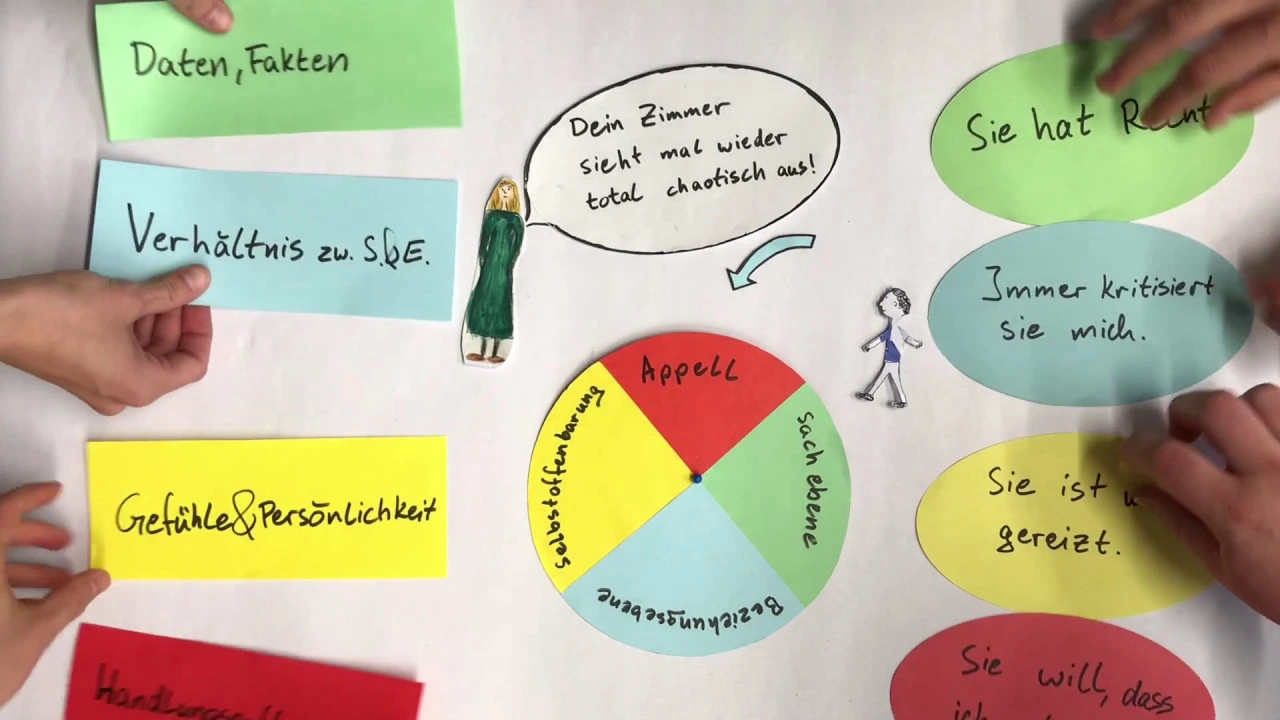 Daten, Fakten
Verhältnis zw. S.&E.
Gefühle&Persönlichkeit
Dein Zimmer
sieht mal wieder
total chaotisch aus!
Appell
Sachebene
Beziehungsebene
Selbstoffenbarung
Sie hat
Immer kritisiert
sie mich.
Sie ist
gereizt.
Sie will, dass